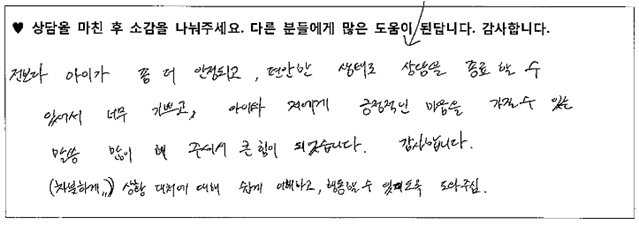 ♥ 상담을 마친 후 소감을 나눠주세요. 다른 분들에게 많은 도움이 된답니다. 감사합니다.
전보다 아이가 좀 더 안정되고, 편안한 상태로 상담을 종료할 수
있어서 너무 기쁘고, 아이와 저에게 긍정적인 마음을 가질 수 있는
말씀 많이 해 주셔서 큰 힘이 되었습니다. 감사합니다.
(차분하게,,) 상황 대처에 대해 쉽게 이해하고, 행동할 수 있게도록 도와주심.